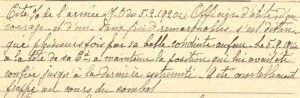 Cité à l'o de l'armée N° 0 du 5.2.1920 : Officier d'élite d'un
courage et d'un sang froid remarquables s'est distingué
plusieurs fois par sa belle conduite au feu. Le 5.9.19
à la tête de sa Cie a maintenu la position qui lui avait été
confiée jusqu'à la dernière extrémité. A été mortellement
frappé au cours du combat